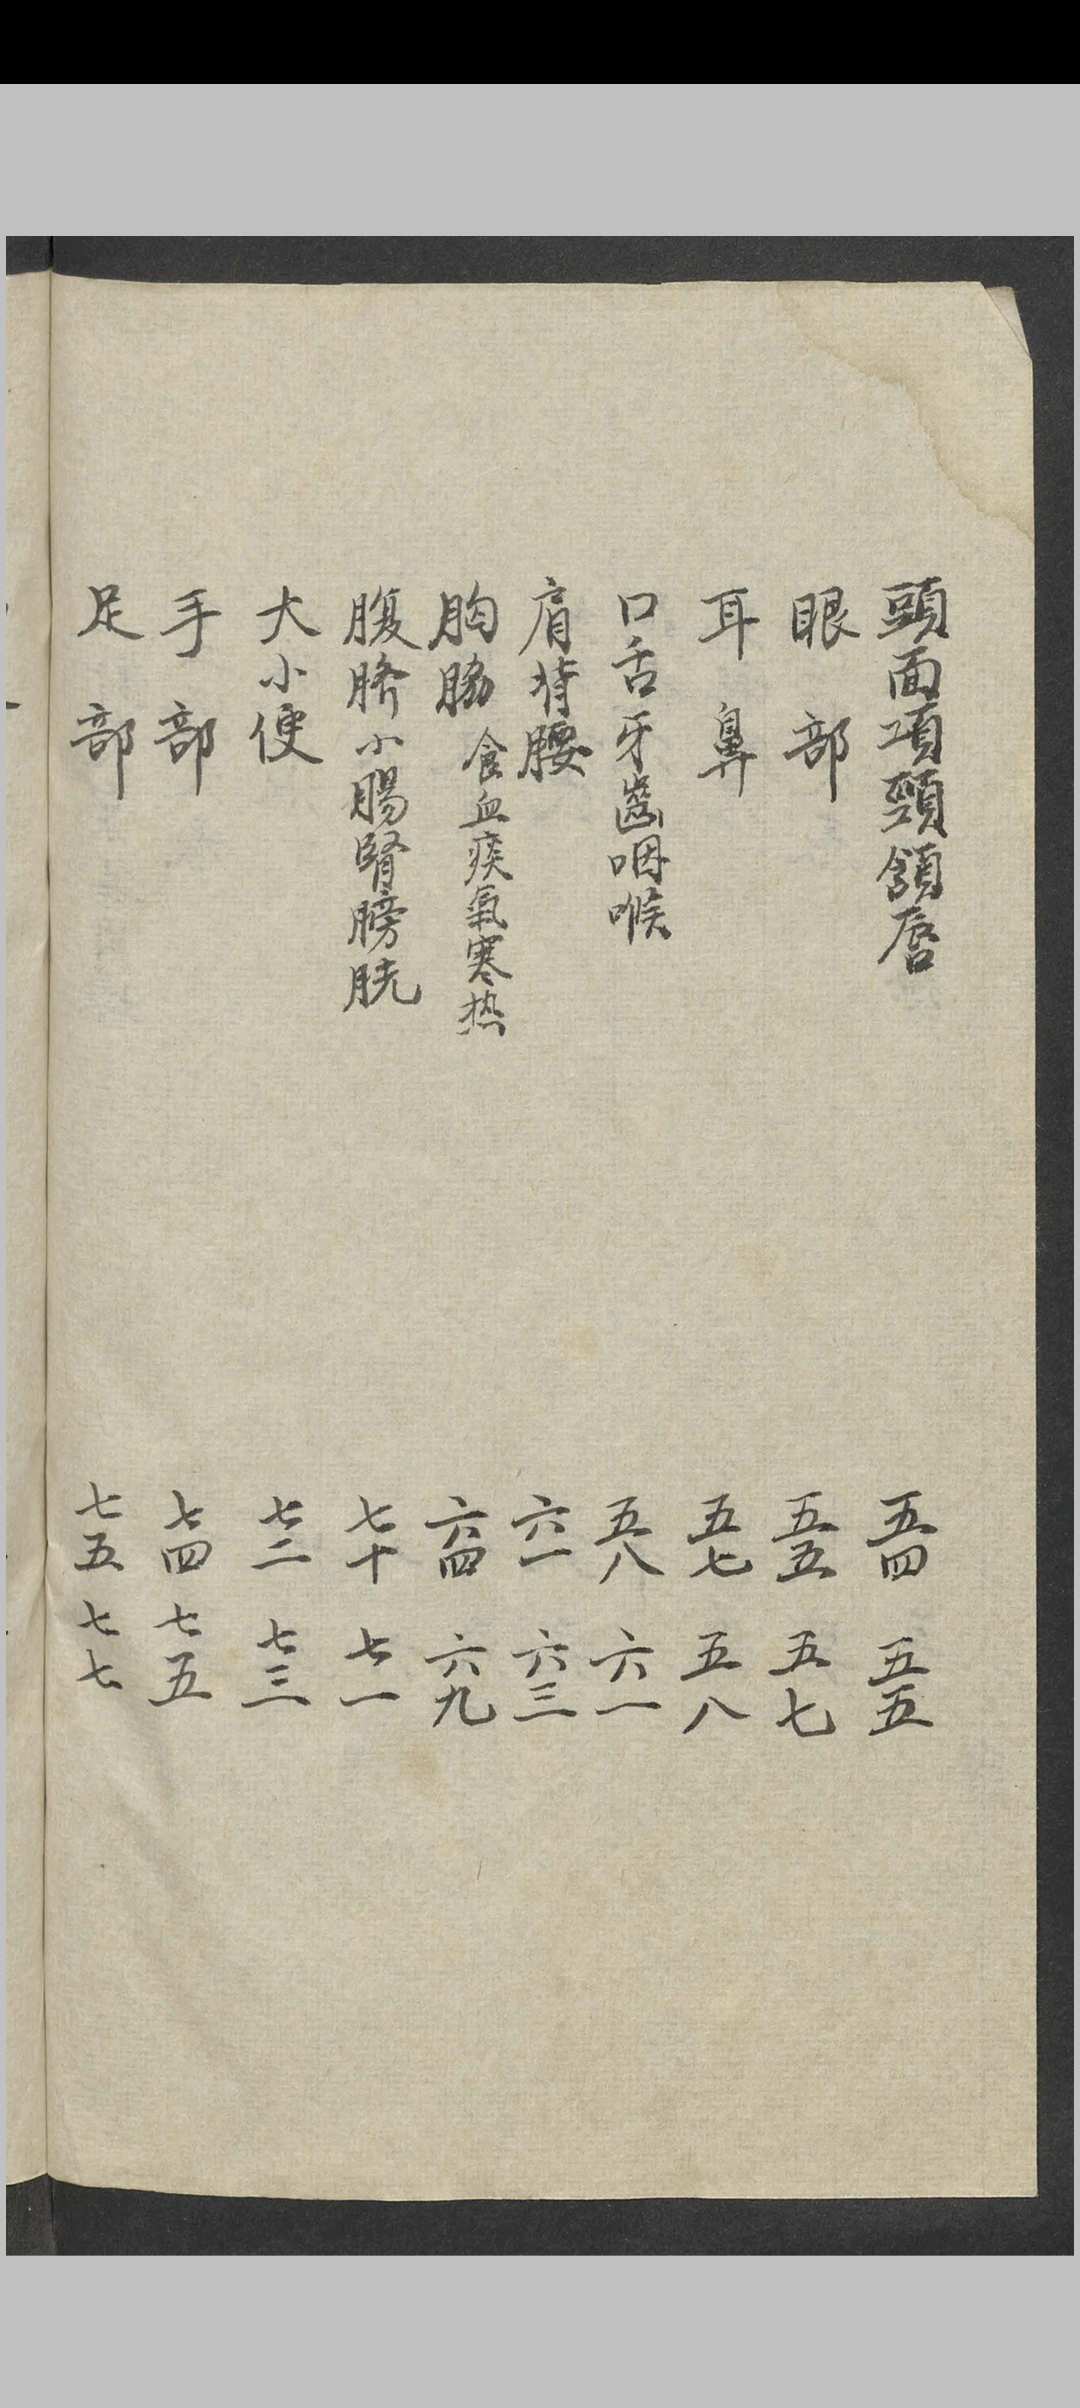 頭面項頸頷唇 五四 五五
眼部 五五 五七
耳鼻 五七 五八
口舌牙齒咽喉 五八 六一
肩背腰 六一 六三
胸脇 食血痰氣寒热 六四 六九
腹臍小腸腎膀胱 七十 七一
大小便 七二 七三
手部 七四 七五
足部 七五 七七